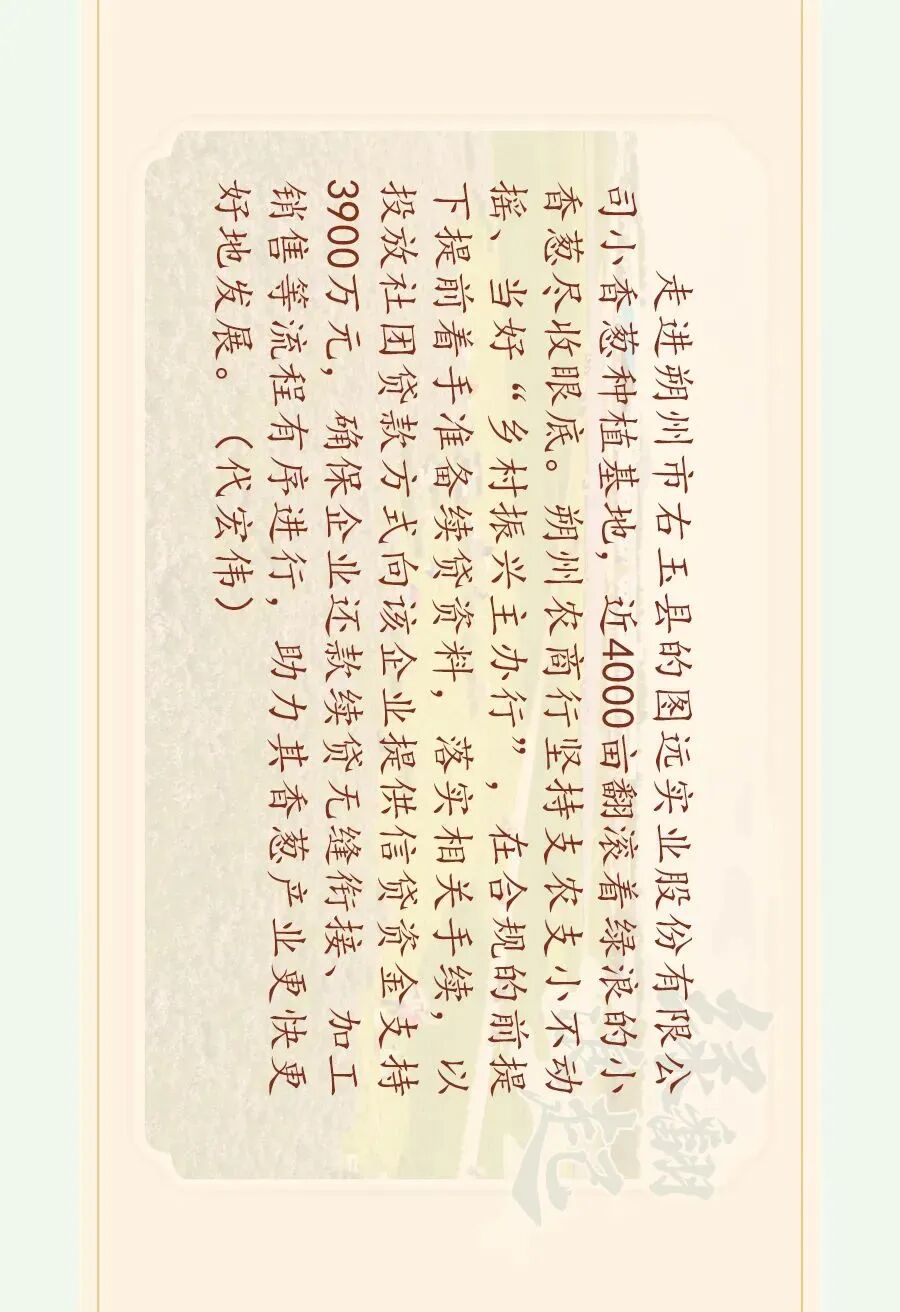 走进朔州市右玉县的图远实业股份有限公
司小香葱种植基地，近4000亩翻滚着绿浪的小
香葱尽收眼底。朔州农商行坚持支农支小不动
摇、当好“乡村振兴主办行”，在合规的前提
下提前着手准备续贷资料，落实相关手续，以
投放社团贷款方式向该企业提供信贷资金支持
3900万元，确保企业还款续贷无缝衔接、加工
销售等流程有序进行，助力其香葱产业更快更
好地发展。（代宏伟）